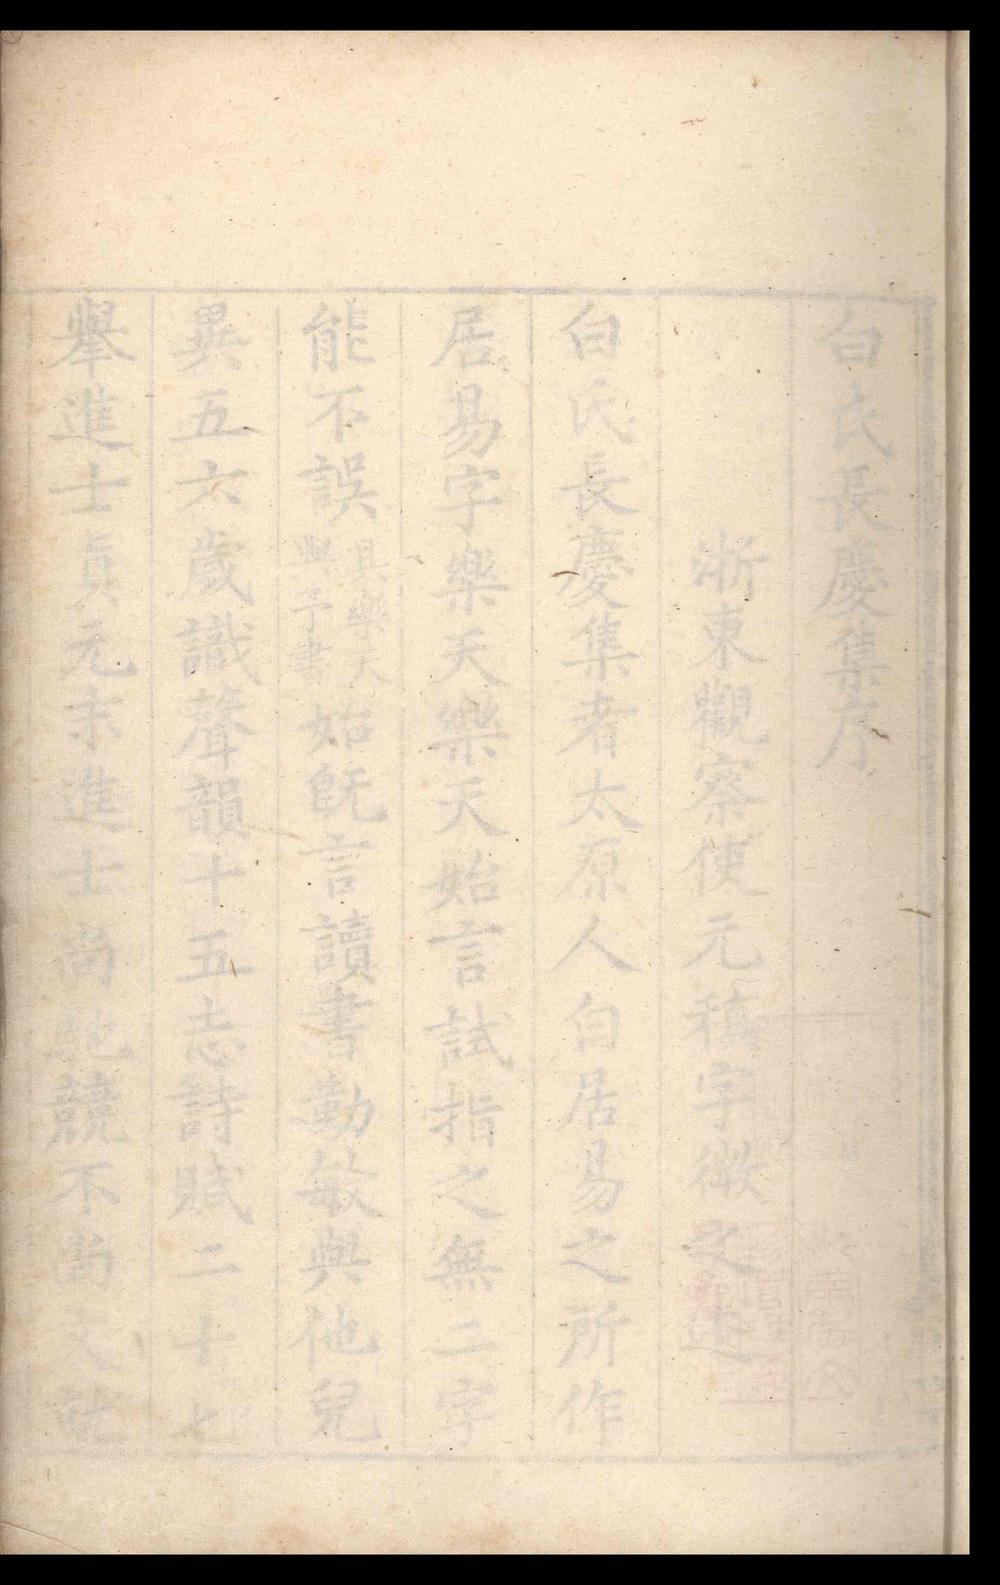 白氏長慶集序
浙東觀察使元稹字微之述
白氏長慶集者太原人白居易之所作
居易字樂天樂天始言試指之無二字
能不誤具樂天與予書始旣言讀書勤敏與他兒
異五六歲識聲韻十五志詩賦二十七
舉進士貞元末進士尚馳競不尚文就